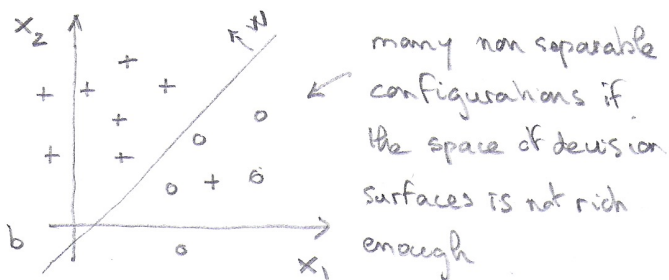 x₂
w
b
x₁
many non separable
configurations if
the space of decision
surfaces is not rich
enough